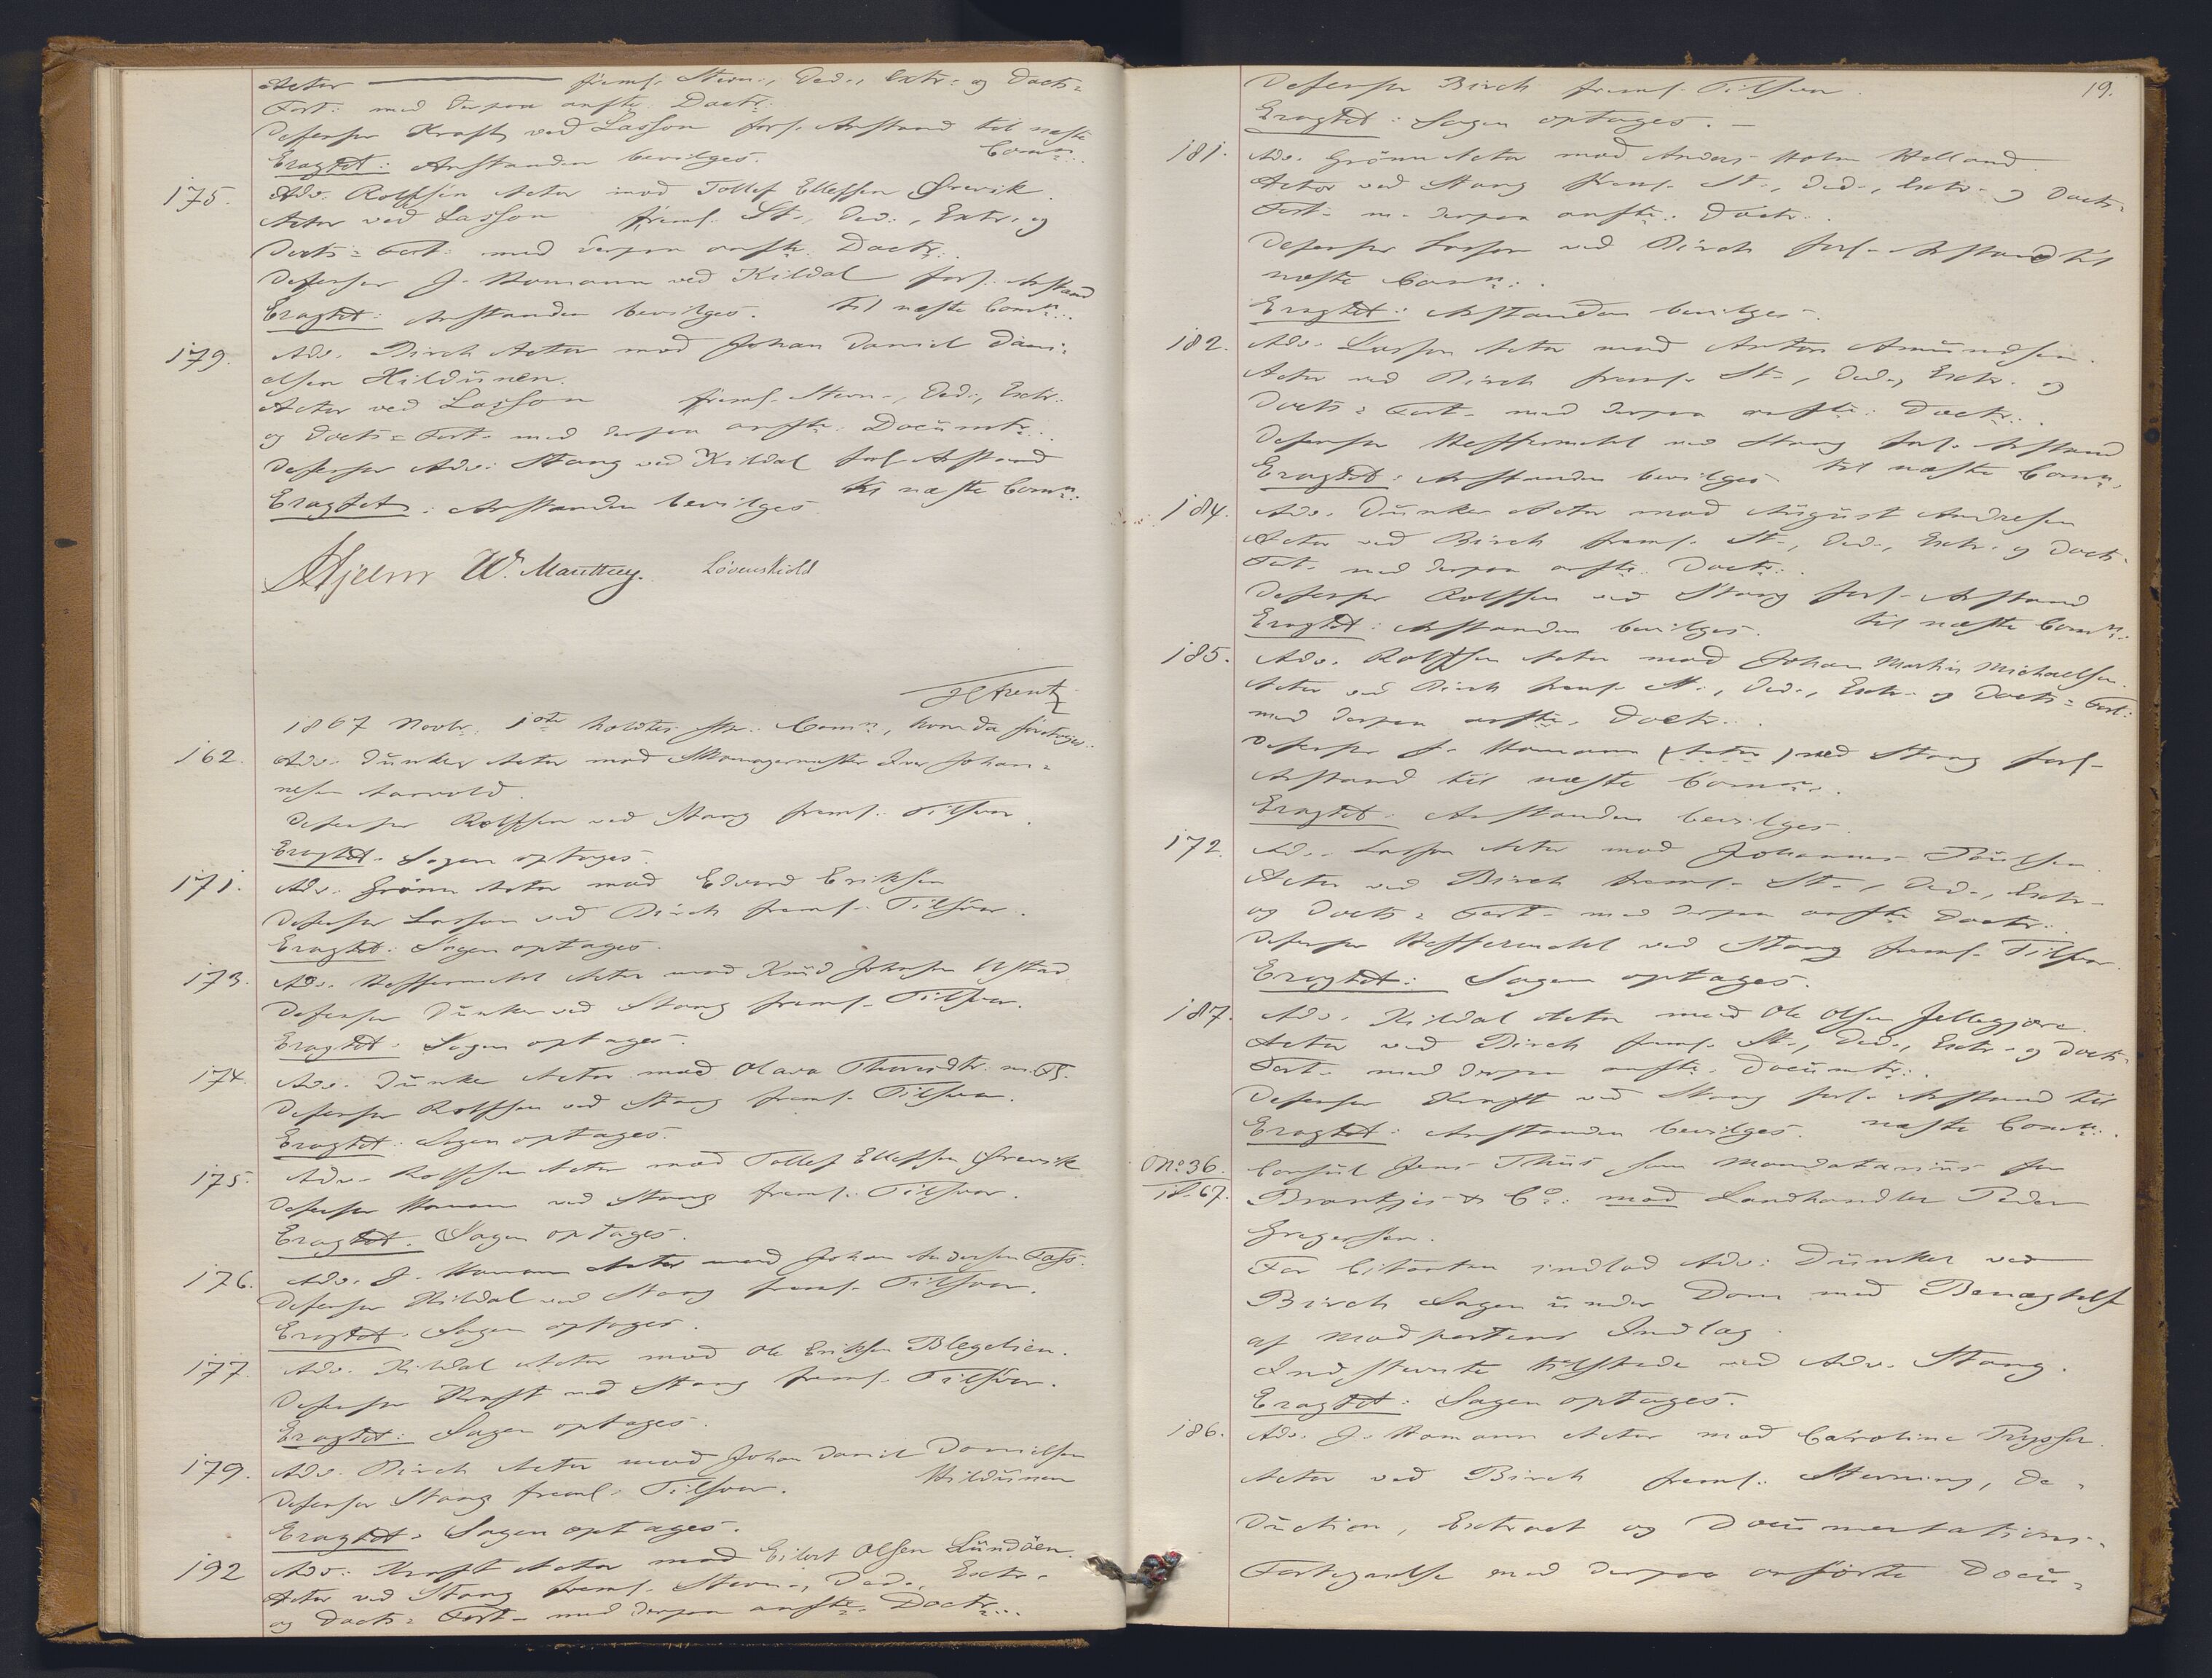 Actor ——— freml. Stevn., Ded., Extr. og Docts=
Fort. med derpaa anfte. Doctr.
Defensor Kraft ved Lasson forl. Anstand til næste
Eragtet: Anstanden bevilges. Comn:.
175. Adv. Rolfsen Actor mod Tollef Ellefsen Ørevik.
Actor ved Lasson freml. St., Ded., Extr. og
Docts= Fort. med derpaa anfte. Doctr:.
Defensor J. Homann ved Kildal forl. Anstand
Eragtet: Anstanden bevilges. til næste Comn:.
179. Adv. Birch Actor mod Johan Daniel Dani=
elsen Hildünen.
Actor ved Lasson freml. Stevn., Ded., Extr.
og Docts= Fort. med derpaa anfte. Documtr:.
Defensor Adv. Stang ved Kildal forl. Anstand
Eragtet: Anstanden bevilges. til næste Comn:.
Hjelm W. Manthey. Løvenskiold
1867 Novbr. 1ste holdtes Comn:, hvor da foretoges:
162. Adv. Dunker Actor mod Iver Johan=
nesen Aarvold.
Defensor Rolfsen ved Stang freml. Tilsvar.
Eragtet. Sagen optages.
171. Adv. Grönn Actor mod Edvard Eriksen
Defensor Lasson ved Birch freml. Tilsvar.
Eragtet: Sagen optages.
173. Adv. Heffermehl Actor mod Knud Johnsen Ystad
Defensor Dunker ved Stang freml. Tilsvar.
Eragtet. Sagen optages.
174. Adv. Dunker Actor mod Olava m. Fl.
Defensor Rolfsen ved Stang freml. Tilsvar.
Eragtet: Sagen optages.
175. Adv. Rolfsen Actor mod Tollef Ellefsen Ørevik
Defensor Homann ved Stang freml. Tilsvar.
Eragtet. Sagen optages.
176. Adv. J. Homann Actor mod Johan Andersen Foss.
Defensor Kildal ved Stang freml. Tilsvar.
Eragtet. Sagen optages.
177. Adv. Kildal Actor mod Ole Eriksen Blegelien.
Defensor Kraft ved Stang freml. Tilsvar.
Eragtet: Sagen optages.
179. Adv. Birch Actor mod Johan Daniel Danielsen
Defensor Stang freml. Tilsvar. Hildünen
Eragtet. Sagen optages.
192 Adv. Kraft Actor mod Eilert Olsen Lundöen.
Actor ved Stang freml. Stevn., Ded., Extr.
og Docts= Fort. med derpaa anfte. Doctr:.
19.
Defensor Birch freml. Tilsvar.
Eragtet: Sagen optages.
181. Adv. Grönn Actor mod Anders Holm Holland
Actor ved Stang freml. St., Ded., Extr. og Docts=
Fort. m. derpaa anfte. Doctr:.
Defensor Lasson ved Birch forl. Anstand til
næste Comn:.
Eragtet: Anstanden bevilges.
182. Adv. Lasson Actor mod Anton Amundsen.
Actor ved Birch freml. St., Ded., Extr. og
Docts= Fort. med derpaa anfte. Doctr:.
Defensor Heffermehl ved Stang forl. Anstand
Eragtet: Anstanden bevilges til næste Comn:.
184. Adv. Dunker Actor mod August Andresen
Actor ved Birch freml. St., Ded., Extr. og Docts=
Fort. med derpaa anfte. Doctr:.
Defensor Rolfsen ved Stang forl. Anstand
Eragtet: Anstanden bevilges. til næste Comn:.
185. Adv. Rolfsen Actor mod Johan Martin Michaelsen.
Actor ved Birch freml. St., Ded., Extr. og Docts= Fort:
med derpaa anfte. Doctr:.
Defensor J. Homann (Actor) ved Stang forl.
Anstand til næste Comn:.
Eragtet. Anstanden bevilges.
172. Adv. Lasson Actor mod Johannes Poulsen
Actor ved Birch freml. St., Ded., Extr.
og Docts= Fort. med derpaa anfte Doctr:.
Defensor Heffermehl ved Stang freml. Tilsvar.
Eragtet: Sagen optages.
187. Adv. Kildal Actor mod Ole Olsen Jellegjære.
Actor ved Birch freml. St., Ded., Extr. og Docts=
Fort. med derpaa anfte. Documtr:.
Defensor Kraft ved Stang forl. Anstand til
Eragtet: Anstanden bevilges. næste Comn:.
No 36. Consul Jens Thiis som Mandatarius for
67. Brantjes & Co: mod Landhandler Peder
Gregersen.
For Citanten indlod Adv: Dunker ved
Birch Sagen under Dom med Benægtelse
af Modpartens Indlæg.
Indstevnte tilstede ved Adv. Stang.
Eragtet: Sagen optages.
186. Adv. J. Homann Actor mod Catroline Prydser.
Actor ved Birch freml. Stevning, De=
duction, Extract og Documentations=
Fortegnelse med derpaa anförte Docu=